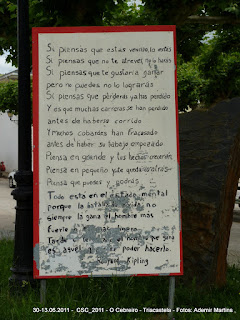 Si piensas que estas vencido, lo estas
Si piensas que no te atreves no lo haras
Si piensas que te gustaria ganar
pero no puedes no lo lograras
Si piensas que perderas ya has perdido
Y es que muchas carreras se han perdido
antes de haberse corrido
Y muchos cobardes han fracasado
antes de haber su trabajo empezado
Piensa en grande y tus hechos creceran
Piensa en pequeño y te quedaras atras
Piensa que puedes y podras
Todo esta en el estado mental
porque la batalla de la vida no
siempre la gana el hombre mas
fuerte
Tarde o el que gana
es aquel poder hacerlo.
Kipling
30-13.05.2011 - CSC_2011 - O Cebreiro - Triacastela - Fotos: Ademir Martins